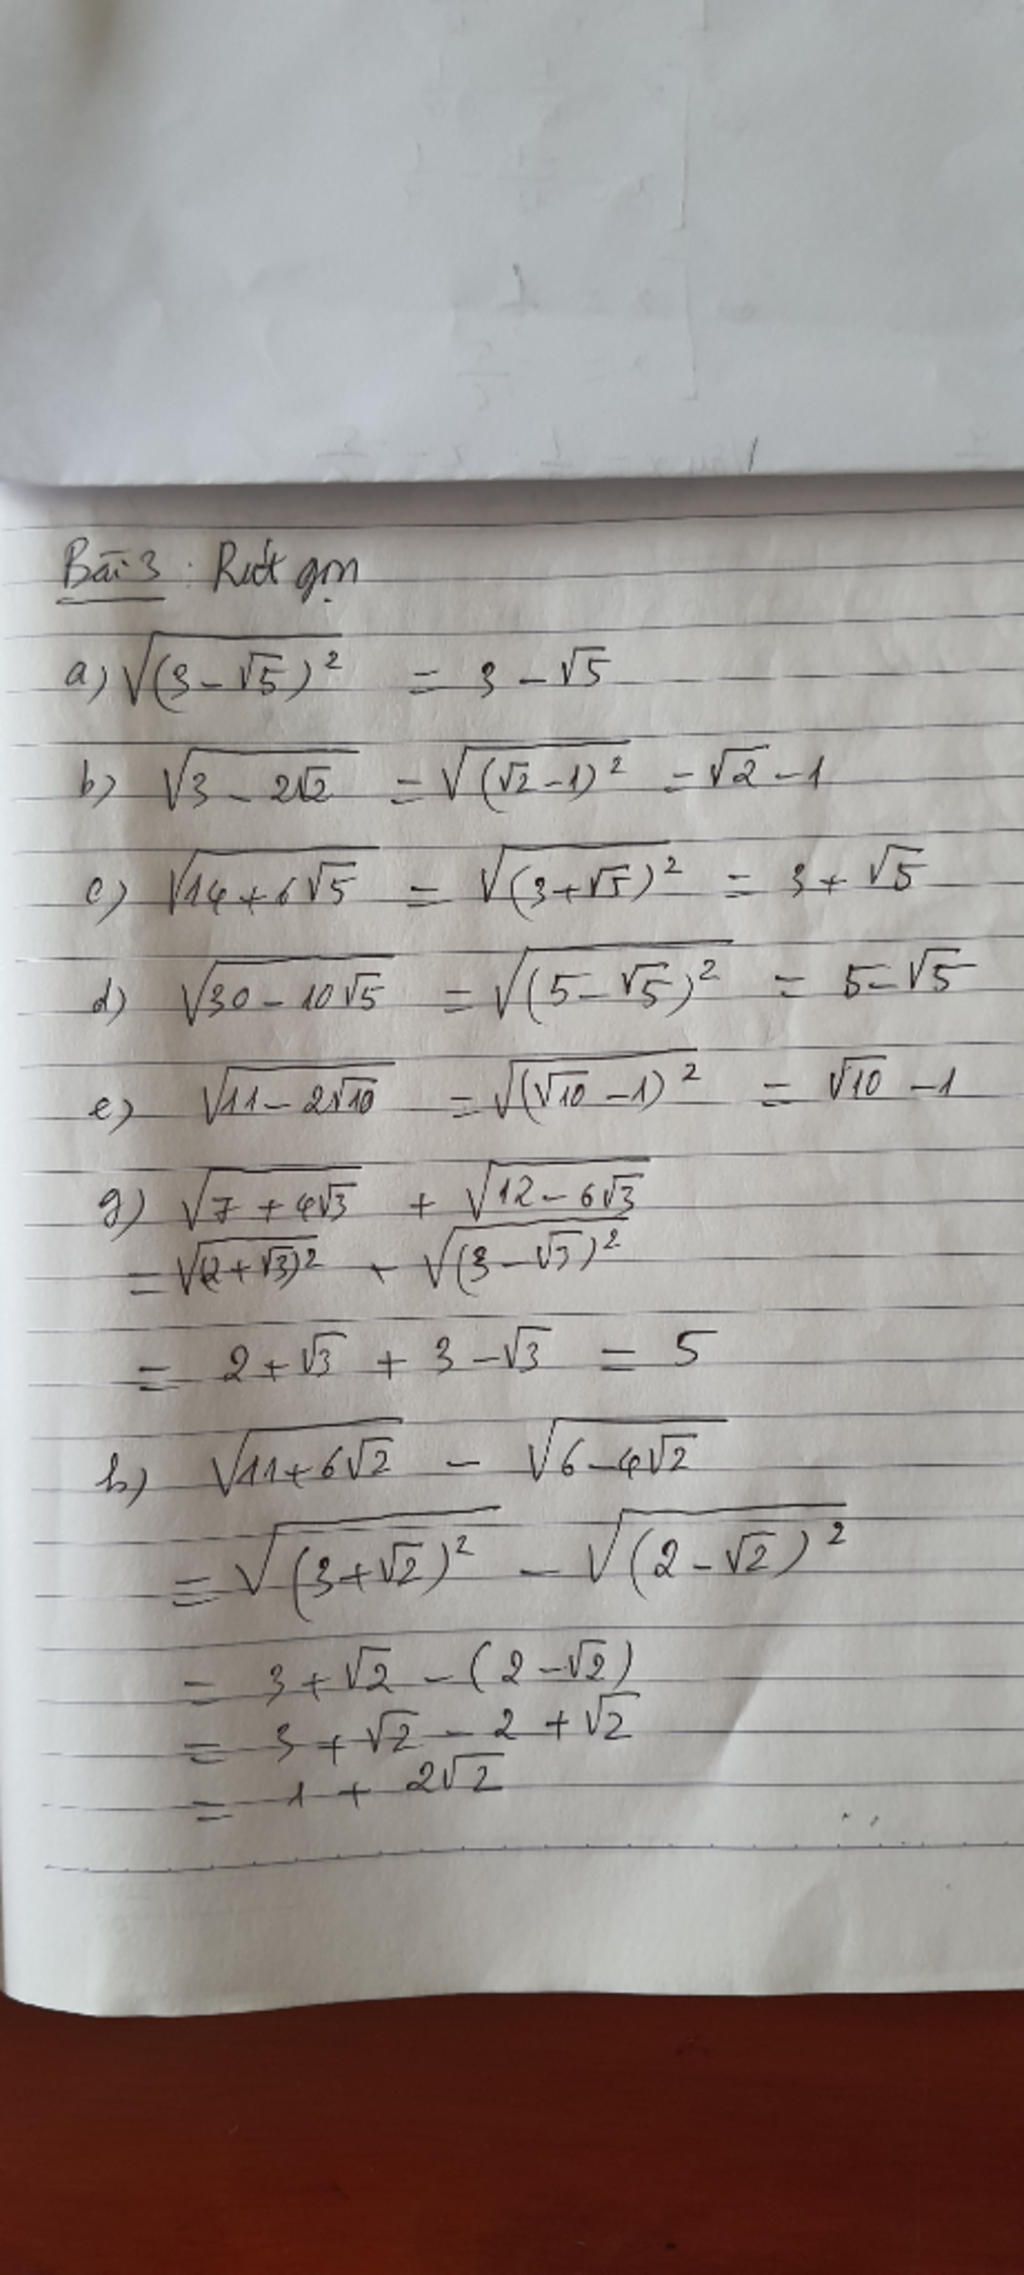 Bài 3 : Rút gọn
a) √(3-√5)² = 3-√5
b) √3-2√2 = √(√2-1)² = √2-1
c) √14+6√5 = √(3+√5)² = 3+√5
d) √30-10√5 = √(5-√5)² = 5-√5
e) √11-2√10 = √(√10-1)² = √10-1
g) √7+4√3 + √12-6√3
= √(2+√3)² + √(3-√3)²
= 2+√3 + 3-√3 = 5
h) √11+6√2 - √6-4√2
= √(3+√2)² - √(2-√2)²
= 3+√2-(2-√2)
= 3+√2-2+√2
= 1+2√2